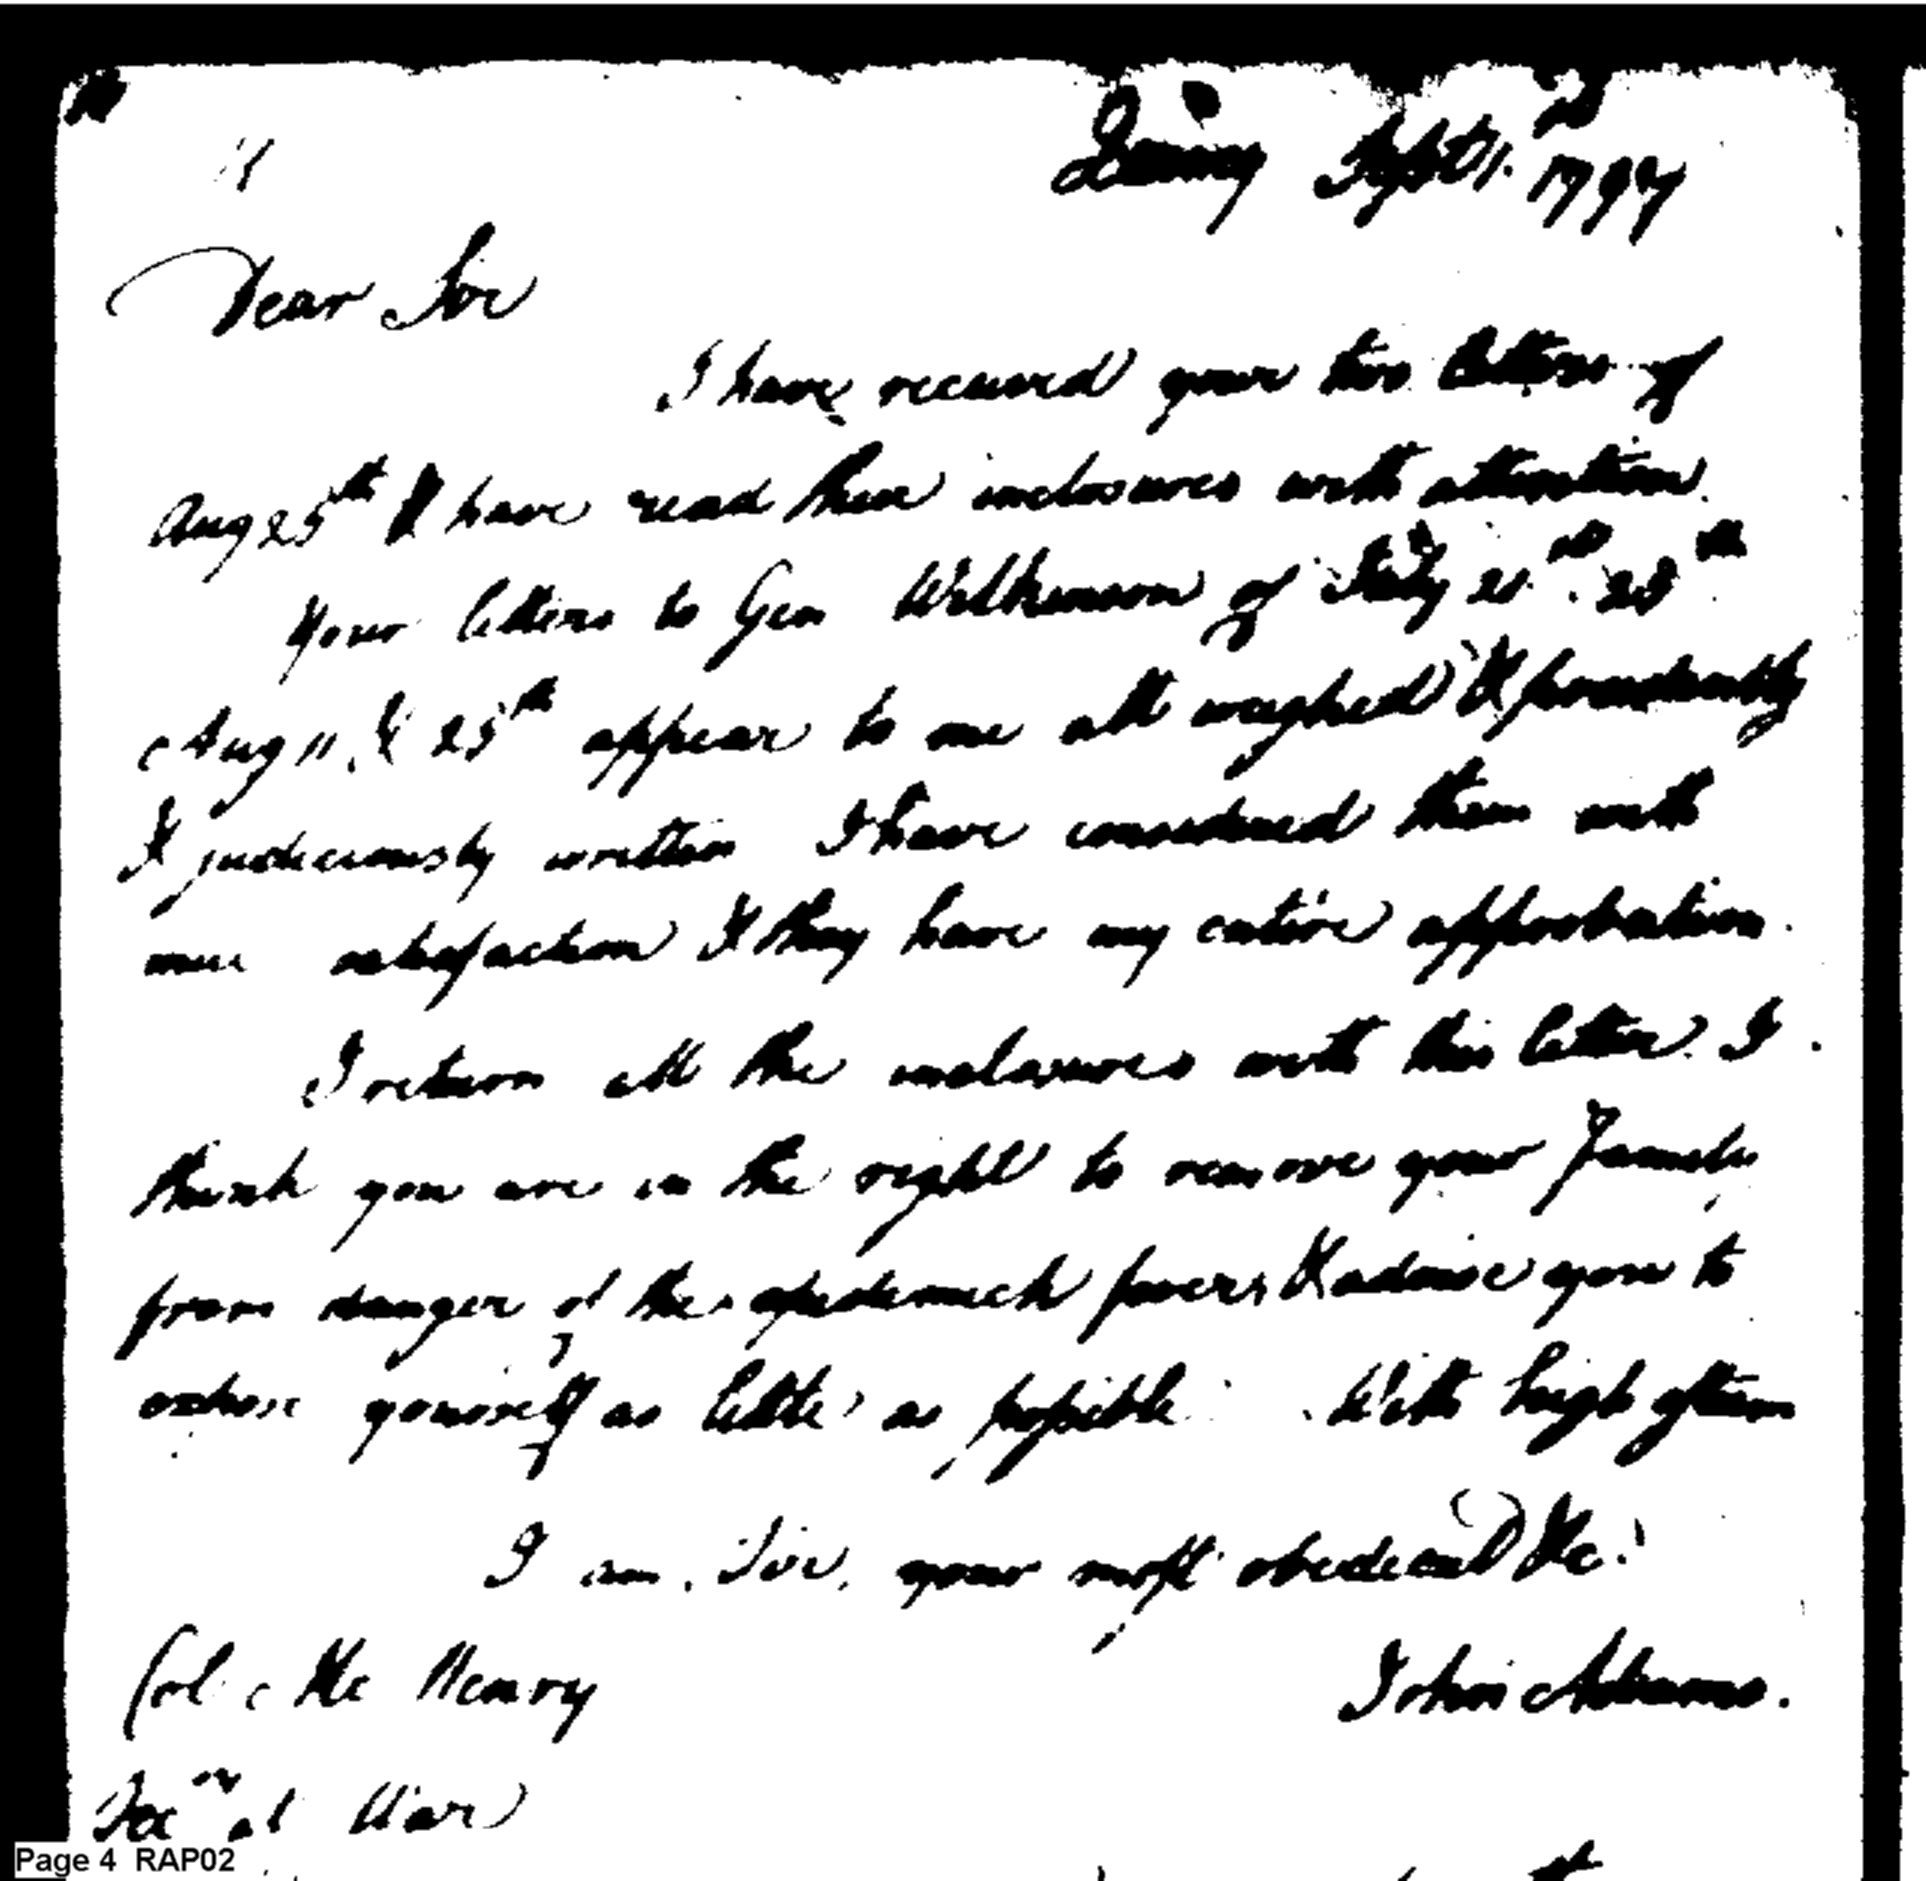 Quincy Sept 2d 1797
Dear Sir
I have received your two letters of
Aug 25th & have read their inclosures with attention.
Your letters to Gen Wilkinson of July 28th
Aug 11. & 25th appear to me all weighed & prudently
& judiciously written I have considered them with
much satisfaction & they have my entire approbation.
I return all the inclosures with this letter. I
think you are in the right to remove your Family
from danger of the epidemick fever & advise you to
expose yourself as little as possible. With high esteem
I am, Sir, your most obedient &c.
Col. Mc Henry John Adams.
Secry at War
Page 4 RAP02